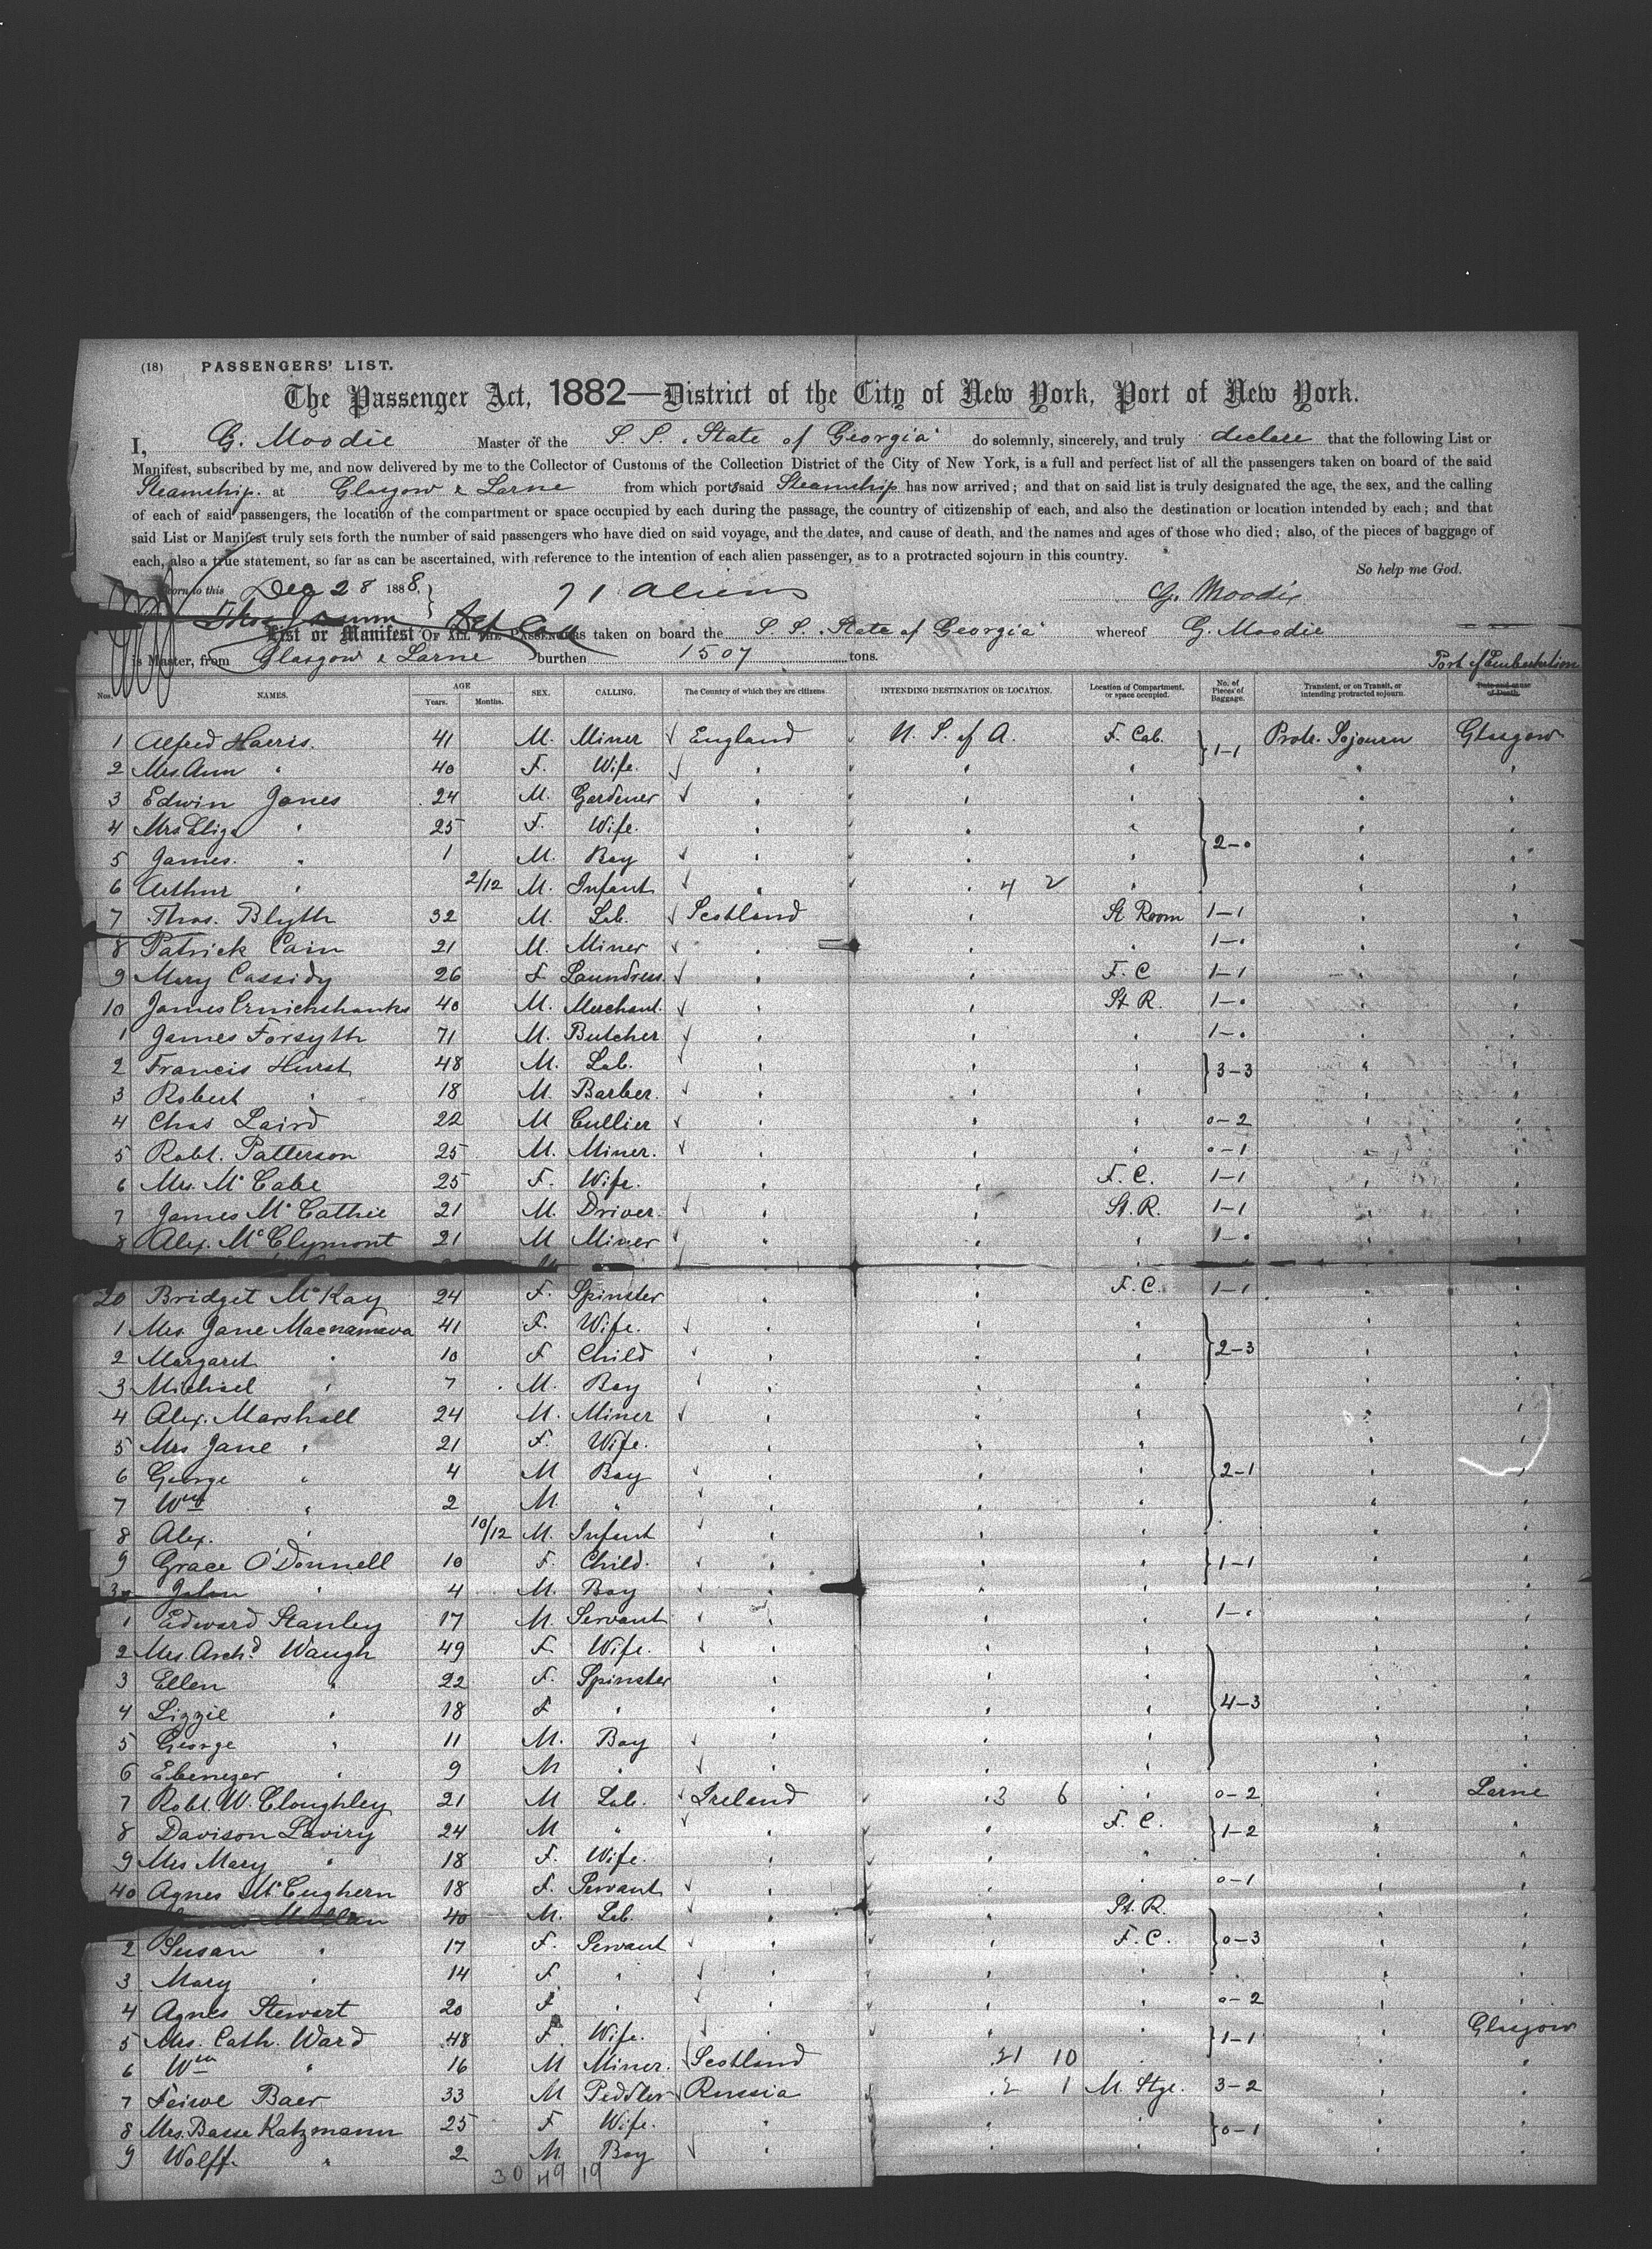 (18) PASSENGERS' LIST.
The Passenger Act, 1882—District of the City of New York, Port of New York.
I, G. Moodie Master of the S. S. "State of Georgia" do solemnly, sincerely, and truly declare that the following List or
Manifest, subscribed by me, and now delivered by me to the Collector of Customs of the Collection District of the City of New York, is a full and perfect list of all the passengers taken on board of the said
Steamship. at Glasgow & Larne from which ports said Steamship has now arrived; and that on said list is truly designated the age, the sex, and the calling
of each of said passengers, the location of the compartment or space occupied by each during the passage, the country of citizenship of each, and also the destination or location intended by each; and that
said List or Manifest truly sets forth the number of said passengers who have died on said voyage, and the dates, and cause of death, and the names and ages of those who died; also, of the pieces of baggage of
each, also a true statement, so far as can be ascertained, with reference to the intention of each alien passenger, as to a protracted sojourn in this country.
So help me God.
orn to this Dec 28 1888. 71 aliens G. Moodie
List or Manifest OF ALL THE PASSENGERS taken on board the S. S. "State of Georgia" whereof G. Moodie
is Master, from Glasgow & Larne burthen 1507 tons. Port of Embarkation
Nos. NAMES. AGE Years. Months. SEX. CALLING. The Country of which they are citizens. INTENDING DESTINATION OR LOCATION. Location of Compartment, or space occupied. No. of Pieces of Baggage. Transient, or on Transit, or intending protracted sojourn. Date and cause of Death.
1 Alfred Harris. 41 M. Miner England U. S. of A. F. Cab. 1-1 Protr. Sojourn Glasgow
2 Mrs. Ann " 40 F. Wife. " " " " "
3 Edwin Jones 24 M. Gardener " " " " "
4 Mrs Eliza " 25 F. Wife. " " " " "
5 James. " 1 M. Boy " " " 2-0 " "
6 Arthur " 2/12 M. Infant " " 4 2 " " "
7 Thos. Blyth 32 M. Lab. Scotland " St Room 1-1 " "
8 Patrick Cain 21 M. Miner " " " 1-0 " "
9 Mary Cassidy 26 F Laundress. " " F. C 1-1 " "
10 James Cruickshanks 40 M. Merchant. " " St. R. 1-0 " "
1 James Forsyth 71 M. Butcher " " " 1-0 " "
2 Francis Hurst 48 M. Lab. " " " 3-3 " "
3 Robert " 18 M. Barber. " " " " "
4 Chas Laird 22 M Cullier " " " 0-2 " "
5 Robt. Patterson 25 M. Miner. " " " 0-1 " "
6 Mrs. McCabe 25 F. Wife. " " F. C. 1-1 " "
7 James McCathie 21 M. Driver. " " St. R. 1-1 " "
8 Alex. McClymont 21 M Miner " " " 1-0 " "
20 Bridget McKay 24 F. Spinster " " F. C. 1-1 " "
1 Mrs. Jane Macnamara 41 F. Wife. " " " 2-3 " "
2 Margaret " 10 F Child " " " " "
3 Michael " 7 M. Boy " " " " "
4 Alex. Marshall 24 M. Miner " " " " "
5 Mrs Jane " 21 F. Wife. " " " " "
6 George " 4 M Boy " " " 2-1 " "
7 Wm " 2 M " " " " " "
8 Alex. " 10/12 M. Infant " " " " "
9 Grace O'Donnell 10 F. Child. " " " 1-1 " "
30 John " 4 M. Boy " " " " "
1 Edward Stanley 17 M. Servant " " " 1-0 " "
2 Mrs. Archd. Waugh 49 F Wife. " " " " "
3 Ellen " 22 F. Spinster " " " " "
4 Lizzie " 18 F " " " " 4-3 " "
5 George " 11 M. Boy " " " " "
6 Ebenezer " 9 M " " " " " "
7 Robt. W. Cloughley 21 M Lab. Ireland " 3 6 " 0-2 " Larne
8 Davison Laviry 24 M " " " F. C. 1-2 " "
9 Mrs Mary " 18 F. Wife. " " " " "
40 Agnes McCughern 18 F. Servant " " " 0-1 " "
40 M. Lab. " " St. R. " "
2 Susan " 17 F. Servant " " F. C. 0-3 " "
3 Mary " 14 F " " " " " "
4 Agnes Stewart 20 F " " " " 0-2 " "
5 Mrs. Cath. Ward 48 F. Wife. " " " 1-1 " Glasgow
6 Wm " 16 M Miner. Scotland 21 10 " "
7 Feiwe Baer 33 M Peddler Russia " 2 1 M. Stge. 3-2 " "
8 Mrs. Basse Katzmann 25 F Wife. " " " 0-1 " "
9 Wolff. " 2 M. Boy " " " " "
30 49 19